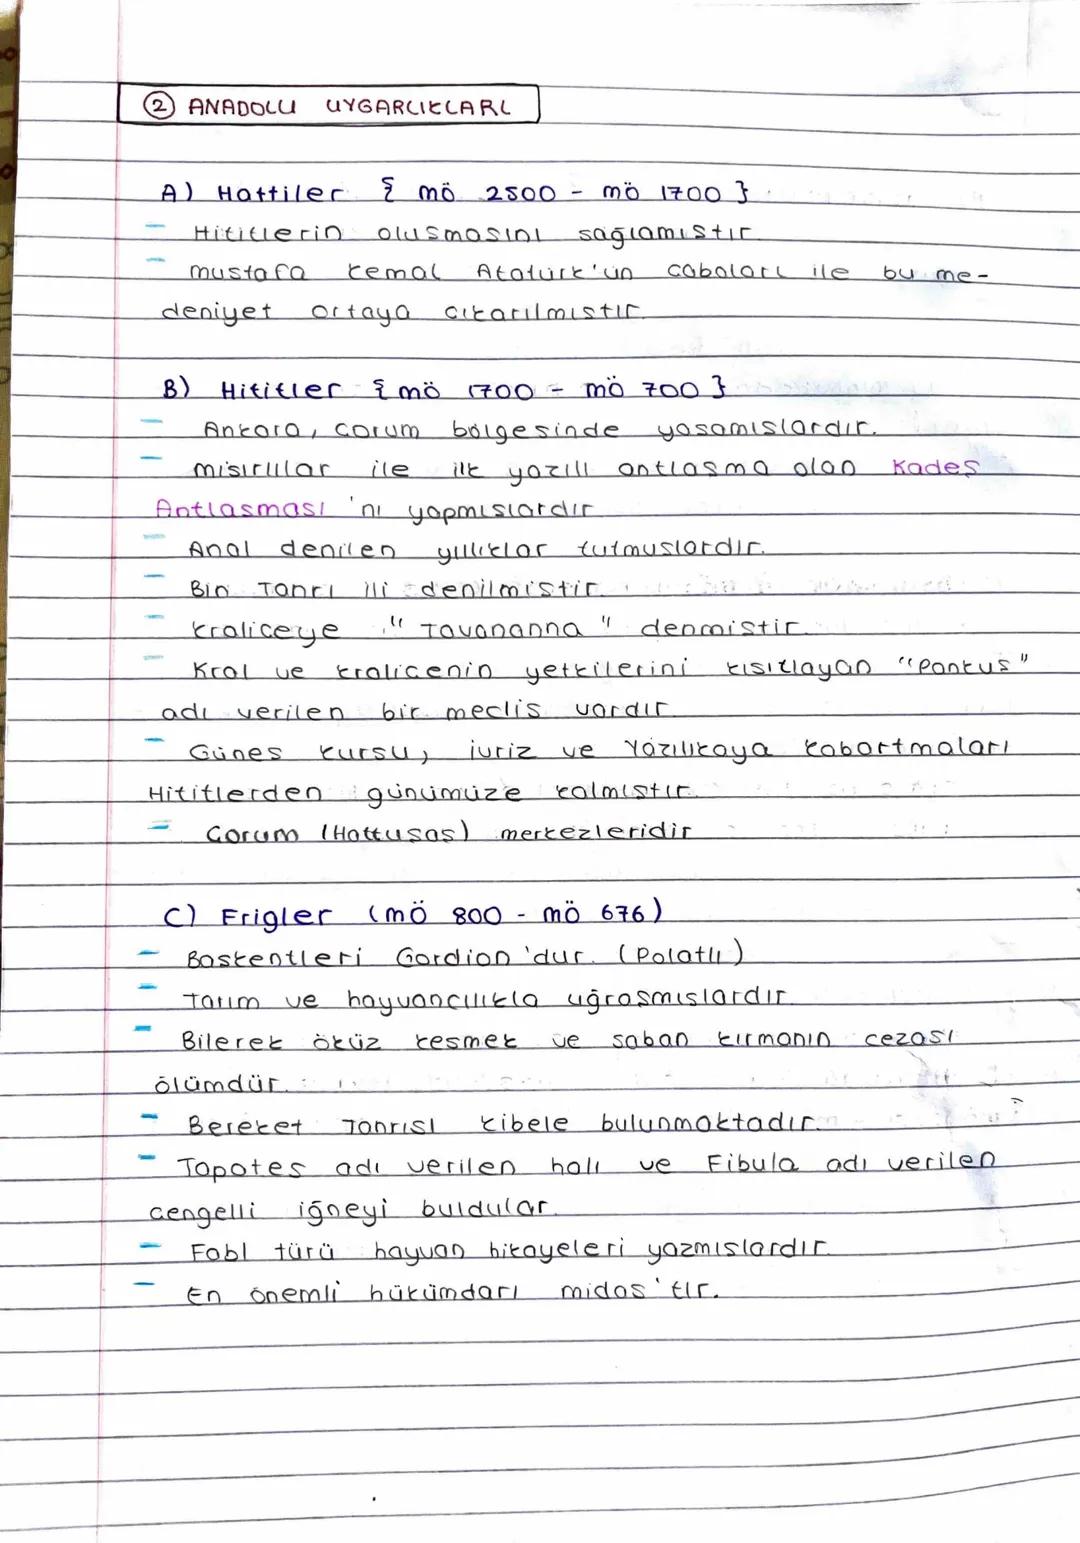 ② ANADOLU UYGARLIKLARI
A) Hattiler { mö 2500 - mö 1700 }
- Hititlerin olusmasını sağlamıstır.
- mustafa kemal Atatürk'ün cabaları ile bu me-
deniyet ortaya cıkarılmıstır.
B) Hititler { mö 1700 - mö 700 }
- Ankara, corum bölgesinde yasamıslardır.
- mısırlılar ile ilk yazılı antlasma olan Kadeş
Antlasması 'nı yapmıslardır.
- Anal denilen yıllıklar tutmuslardır.
- Bin Tanrı ili denilmistir.
- kraliceye "Tavananna" denmistir.
- Kral ve kralicenin yetkilerini kısıtlayan "Pankus"
adı verilen bir meclis vardır.
- Günes kursu, ivriz ve Yazılıkaya kabartmaları
Hititlerden günümüze kalmıstır.
- Corum (Hattusas) merkezleridir
C) Frigler (mö 800 - mö 676)
- Baskentleri Gordion 'dur. (Polatlı)
- Tarım ve hayvancılıkla uğrasmıslardır.
- Bilerek öküz kesmek ve saban kırmanın cezası
ölümdür.
- Bereket Tanrısı kibele bulunmaktadır.
- Tapates adı verilen halı ve Fibula adı verilen
cengelli iğneyi buldular.
- Fabl türü hayvan hikayeleri yazmıslardır.
- En önemli hükümdarı midas'tır.